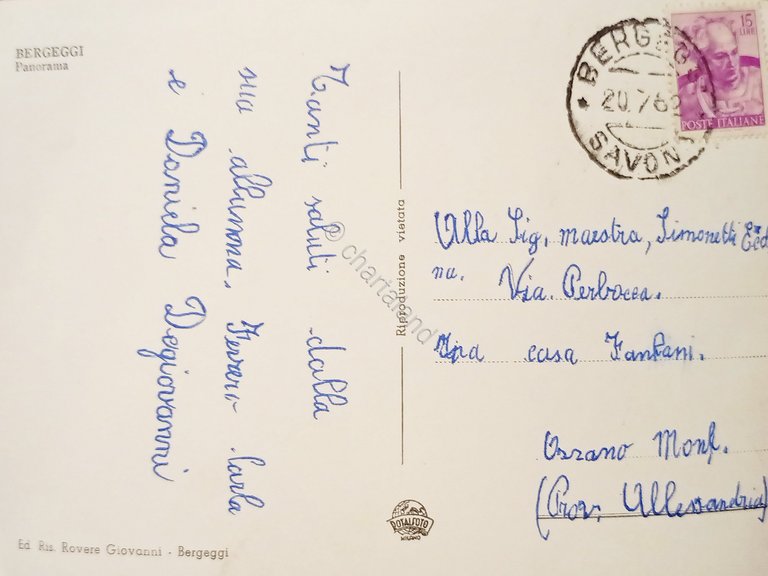 BERGEGGI
Panorama
Tanti saluti dalla
sua allunna. Ferrari Carla
e Daniela Degiovanni
Riproduzione vietata
© chartaland
BERGEGGI
20.7.62
SAVONA
15
LIRE
POSTE ITALIANE
Alla Sig. maestra, Simonetti
na.
Via. Perbocca.
Ina casa Fanfani.
Ozzano Monf.
(Prov. Allessandria)
ROTALFOTO
MILANO
Ed Ris. Rovere Giovanni - Bergeggi